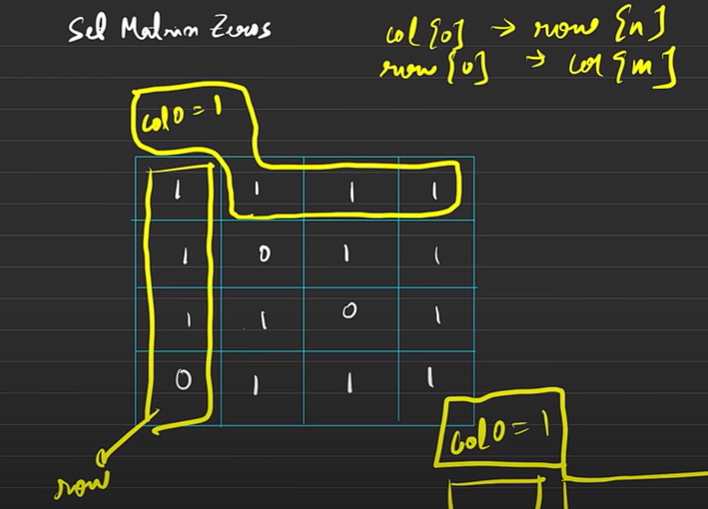 Set Matrix Zeros
col[0] → row[n]
row[0] → col[m]
col0 = 1
1 1 1 1
1 0 1 1
1 1 0 1
0 1 1 1
col0 = 1
row